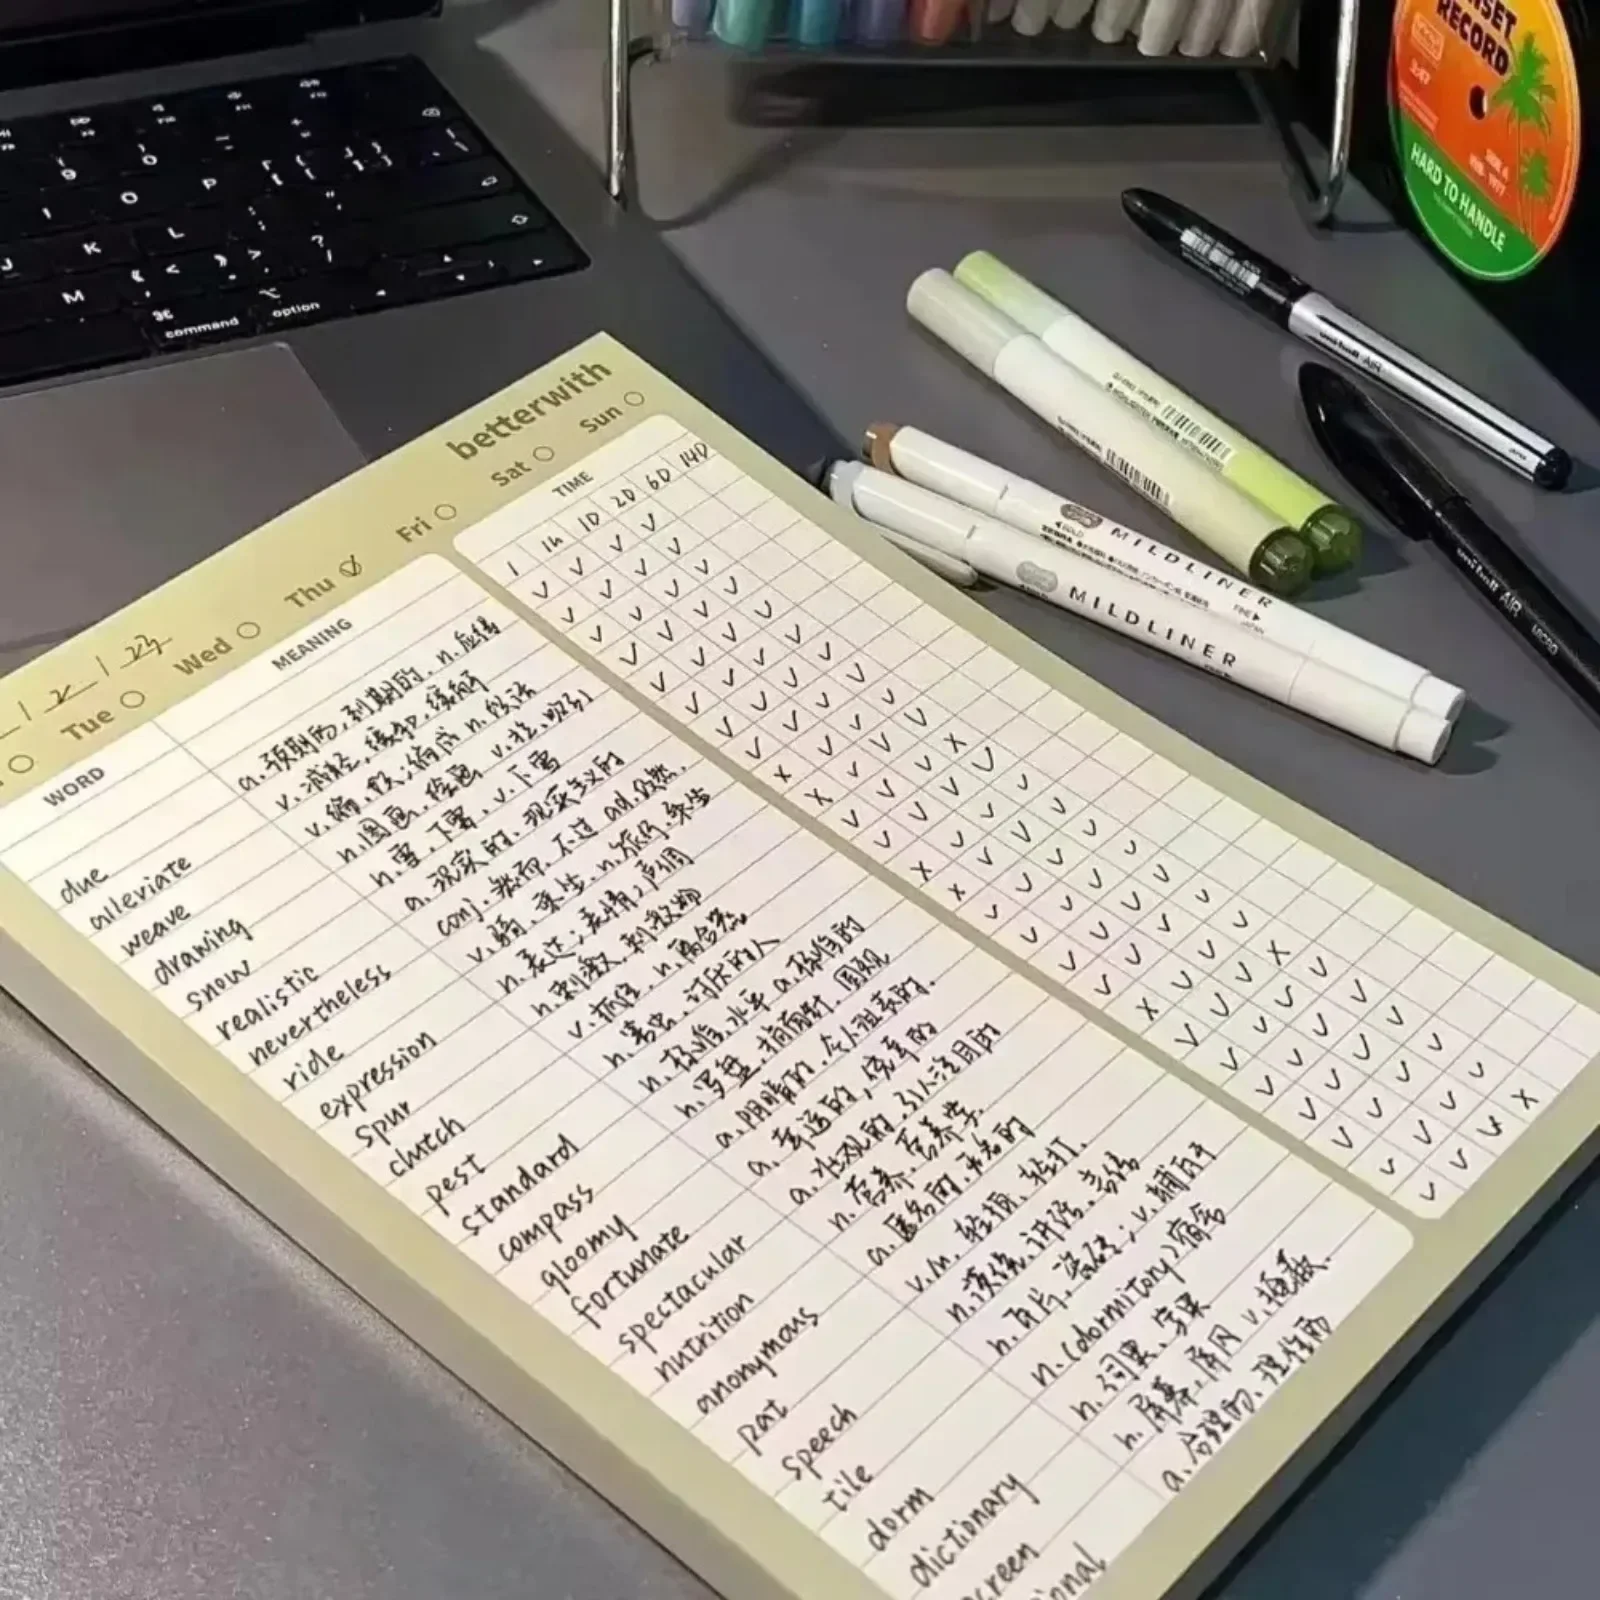 SET
RECORD
HARD TO HANDLE
command option
betterwith
Tue Wed Thu Fri Sat Sun
WORD MEANING TIME
1 1h 1D 2D 6D 14D
due a.预期的,到期的, n.应得
alleviate v.减轻,缓和,缓解
weave v.编,织;编成 n.织法
drawing n.图画,绘画
snow n.雪,下雪, v.下雪
realistic a.现实的,现实主义的
nevertheless conj.然而,不过 ad.仍然.
ride v.骑,乘坐, n.旅行,乘坐
expression n.表达;表情;声调
spur n.刺激,刺
clutch v.抓住, n.离合器
pest n.害虫,讨厌的人
standard n.标准,水平 a.标准的
compass n.罗盘,指南针,圆规
gloomy a.阴暗的,令人沮丧的.
fortunate a.幸运的,侥幸的
spectacular a.壮观的,引人注目的
nutrition n.营养,营养学
anonymous a.匿名的,
pat v.n.轻拍,轻打.
speech n.演说,讲话,言语
tile n.瓦片,瓷砖; v.
dorm n.(dormitory)宿舍
dictionary n.词典,字典
creen n.屏幕,屏风 v.掩蔽.
ional a.合理的,理性的
uni-ball AIR
uni-ball AIR MICRO
MILDLINER
MILDLINER